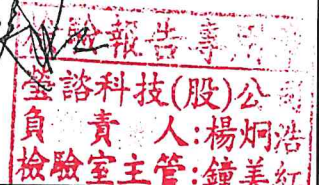 檢驗報告專用
瑩諮科技(股)公司
負責人:楊炯浩
檢驗室主管:鐘美紅